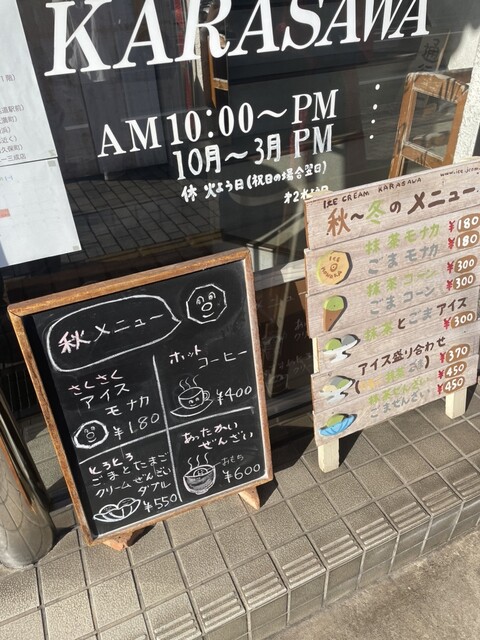 KARASAWA
AM 10:00～PM
10月～3月 PM
休 火よう日(祝日の場合翌日)
秋メニュー
さくさく
アイス
モナカ
¥180
ホット
コーヒー
¥400
とろとろ
ごまとたまご
クリームぜんざい
ダブル
¥550
あったかい
ぜんざい
おもち
¥600
ICE CREAM KARASAWA
秋～冬のメニュー
抹茶モナカ ¥180
ごまモナカ ¥180
抹茶コーン ¥300
ごまコーン ¥300
抹茶とごまアイス ¥300
アイス盛り合わせ ¥370
抹茶ぜんざい ¥450
ごまぜんざい ¥450